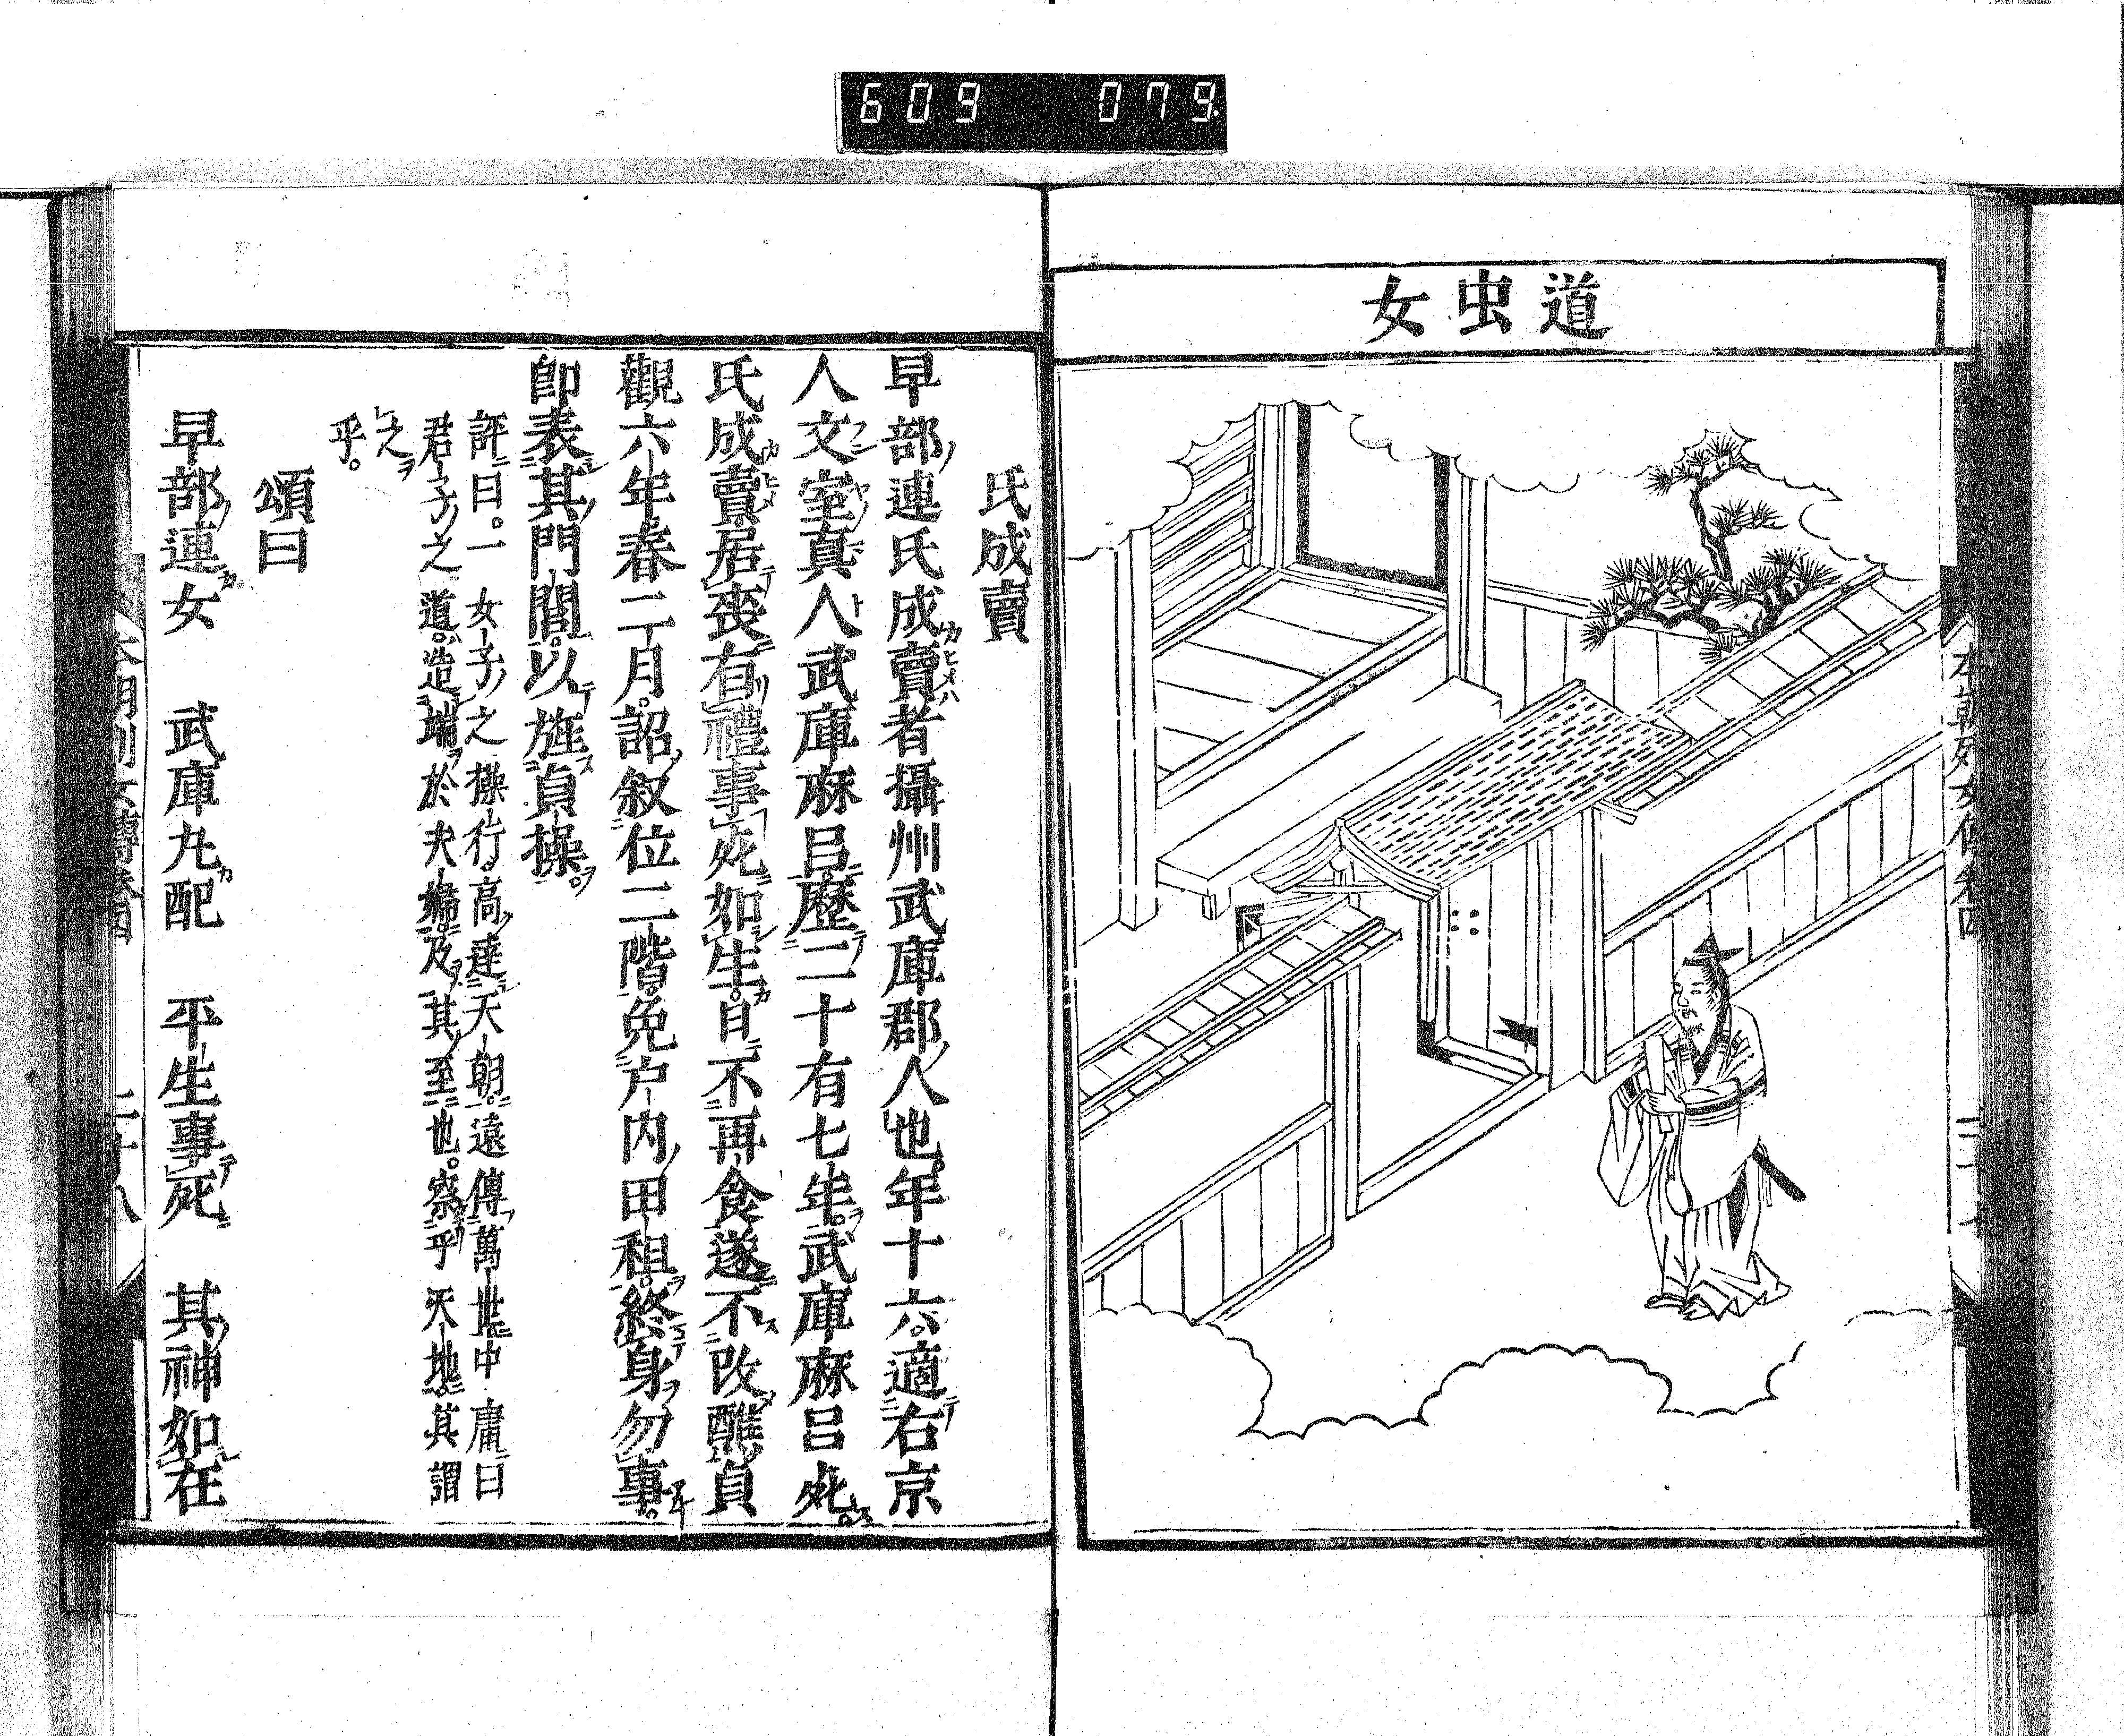 609 079
道虫女
本朝列女傳卷四
二十七
氏成賣
早部連氏成賣者攝州武庫郡人也年十六適右京
人文室真人武庫麻呂歷二十有七年武庫麻呂死
氏成賣居喪有禮事死如生日不再食遂不改醮貞
觀六年春二月詔叙位二階免戶內田租終身勿事
卽表其門閭以旌貞操
評曰一女子之操行高達天朝遠傳萬世中庸曰
君子之道造端於夫婦及其至也察乎天地其謂
之乎
頌曰
早部連女 武庫丸配 平生事死 其神如在
本朝列女傳卷四
二十八